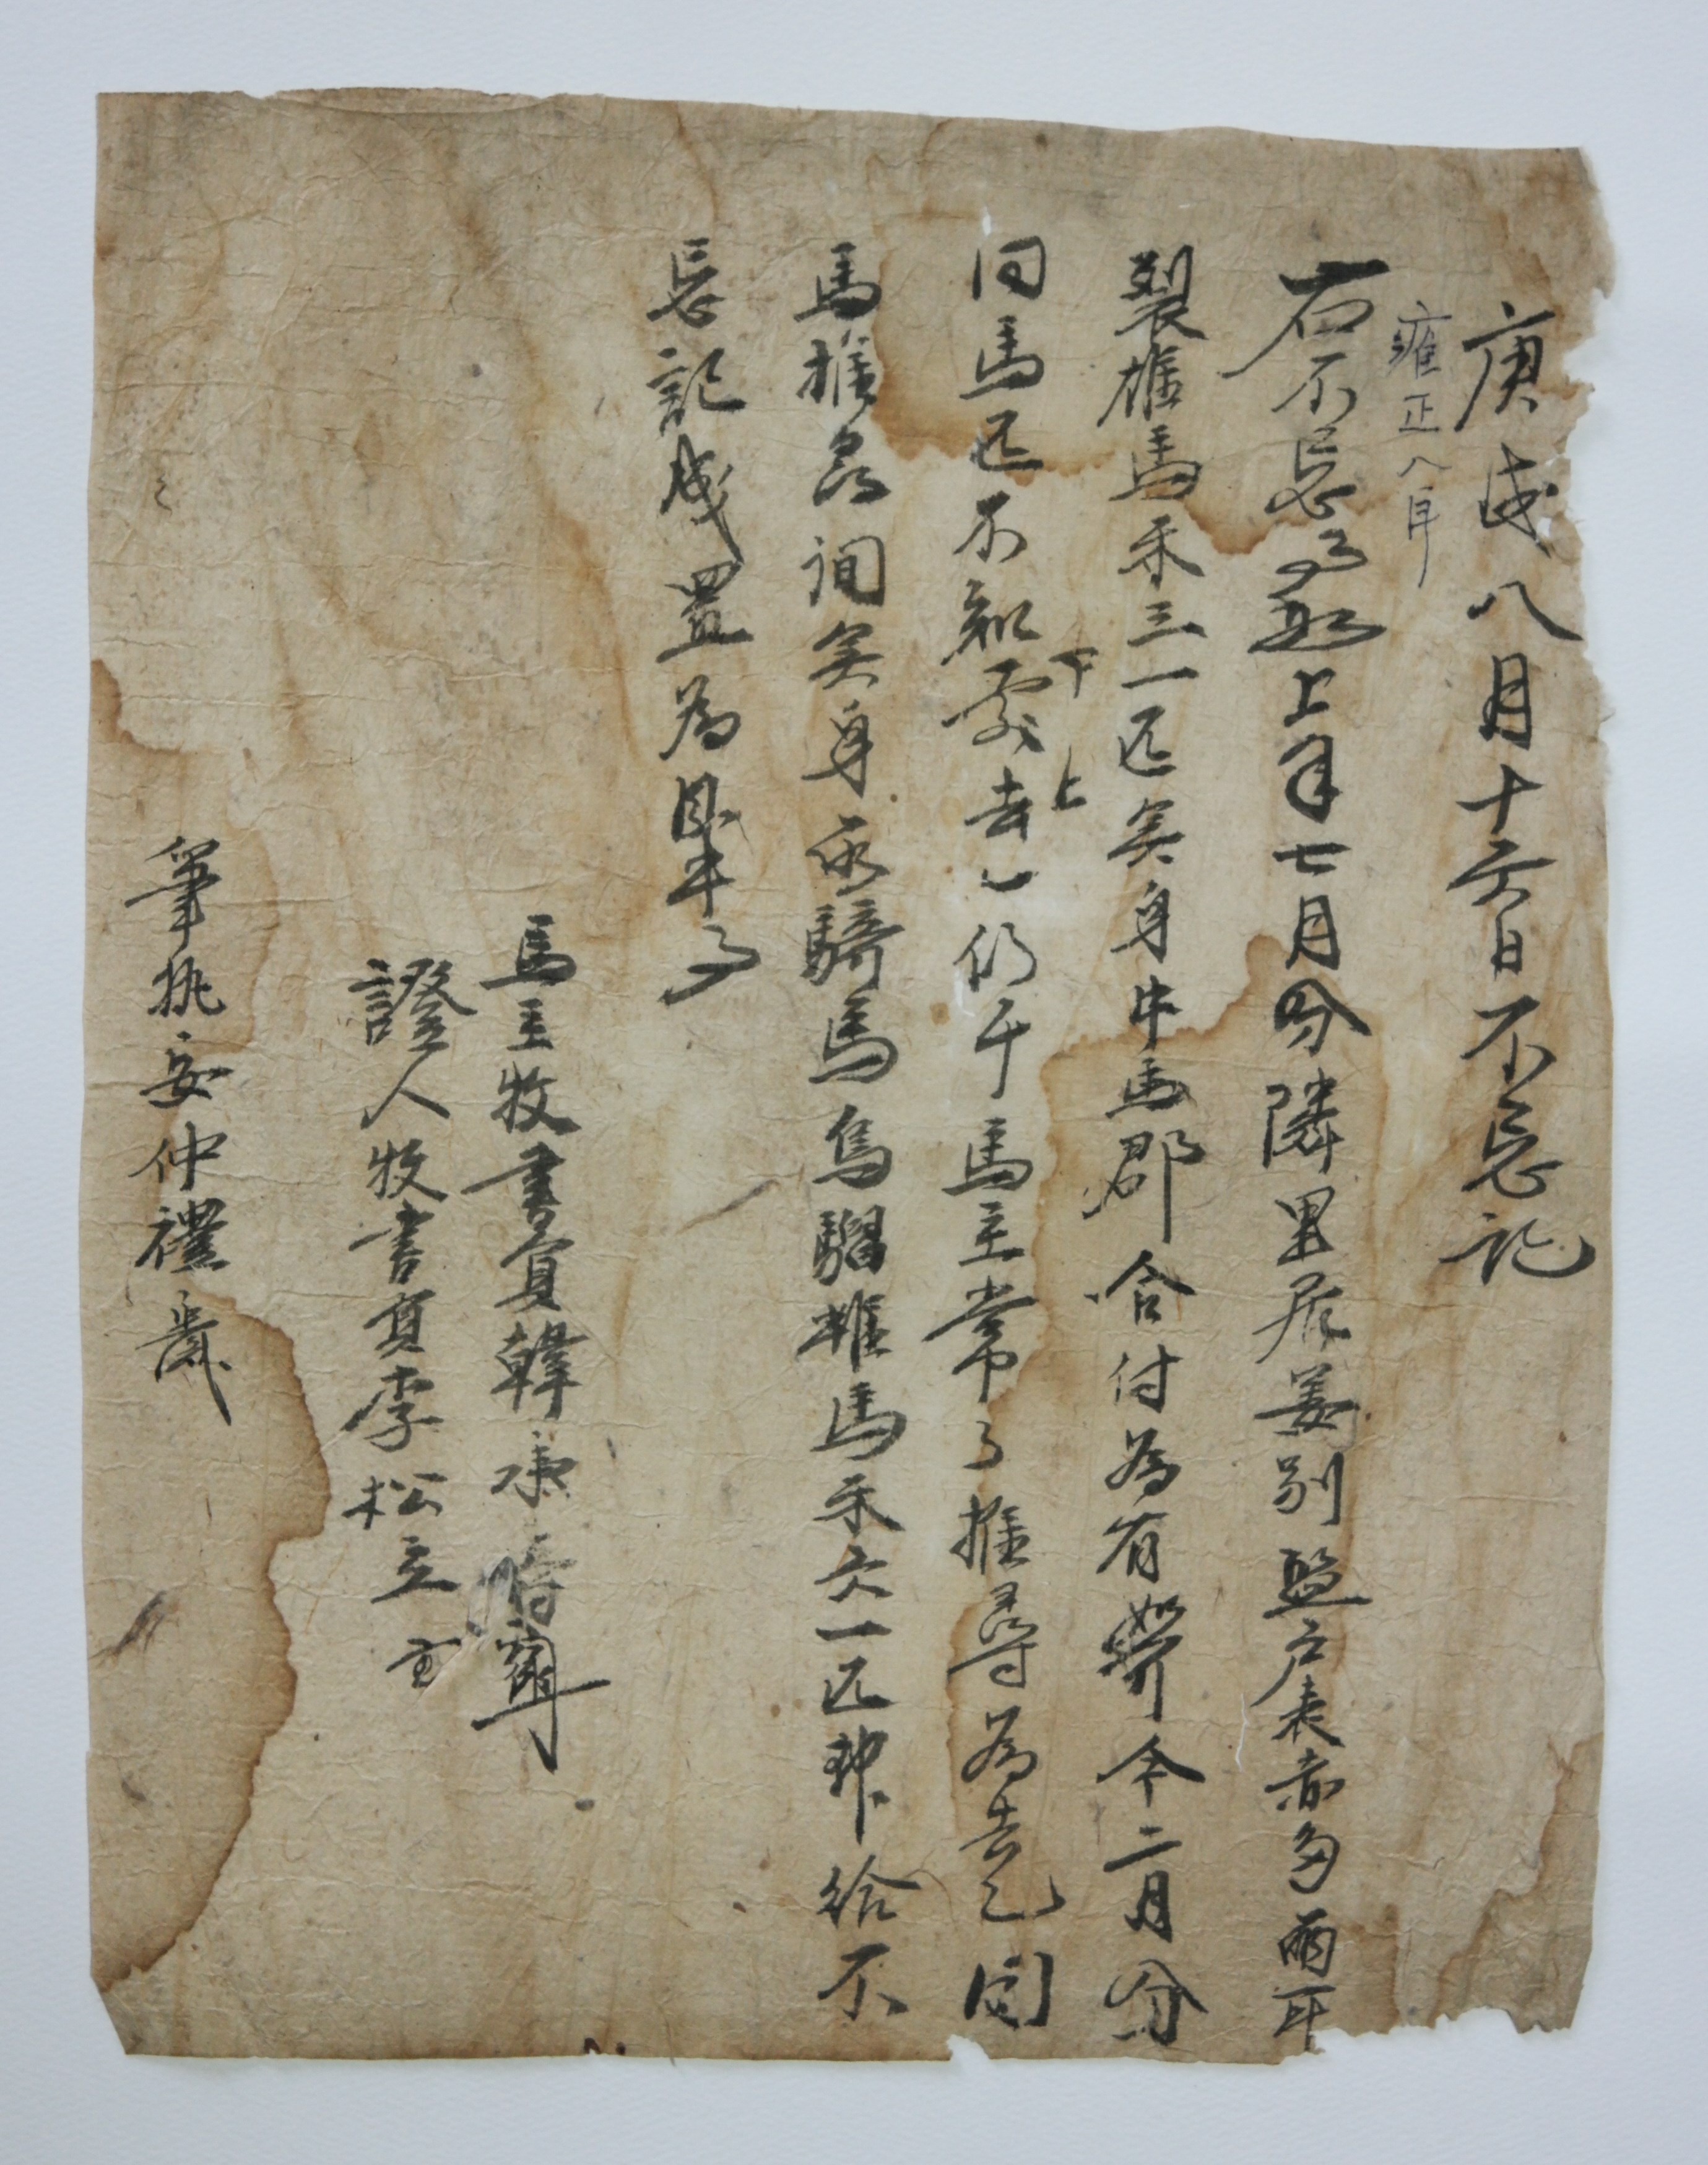 庚戌八月十六日不忘記
雍正八年
右不忘事段上年七月分隣里居姜別監戶表赤多兩耳
裂雄馬禾三一匹矣身牛馬群合付爲有如乎今二月分
同馬匹不知處去乙仍于馬主常常推尋爲去乙同
下上
馬推尋間矣身所騎馬烏騮雄馬禾六一匹許給不
忘記成置爲臥乎事
馬主牧書員韓
證人牧書員李松立
筆執安仲禮